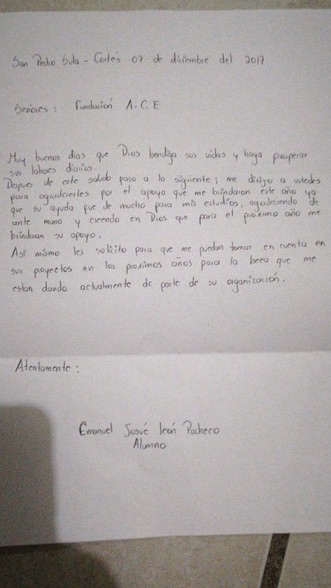 San Pedro Sula - Cortés 07 de diciembre del 2017
Señores: Fundación A.C.E
Muy buenos dias que Dios bendiga sus vidas y haga prosperar
sus labores diarios.
Depues de este saludo paso a lo siguiente; me dirijo a ustedes
para agradecerles por el apoyo que me brindaron este año ya
que su ayuda fue de mucho para mis estudios, agradeciendo de
ante mano y creendo en Dios que para el proximo año me
brindaran su apoyo.
Asi mismo les solicito para que me puedan tomar en cuenta en
sus proyectos en los proximos años para la beca que me
estan dando actualmente de parte de su organización.
Atentamente:
Emanuel Josué león Pacheco
Alumno